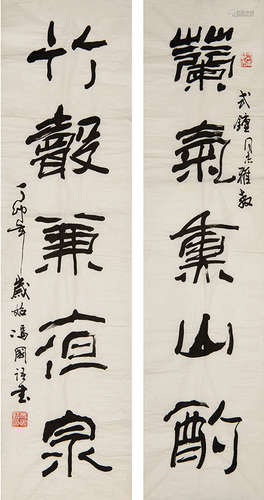 蘭氣熏山酌
武鐘同志雅教
竹聲兼夜泉
丁卯年歲始馮國語書